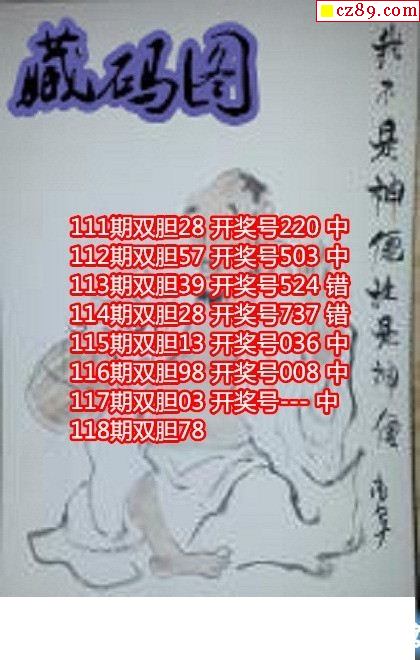 cz89.com
藏码图
我不是神仙谁是神仙
111期双胆28 开奖号220 中
112期双胆57 开奖号503 中
113期双胆39 开奖号524 错
114期双胆28 开奖号737 错
115期双胆13 开奖号036 中
116期双胆98 开奖号008 中
117期双胆03 开奖号--- 中
118期双胆78